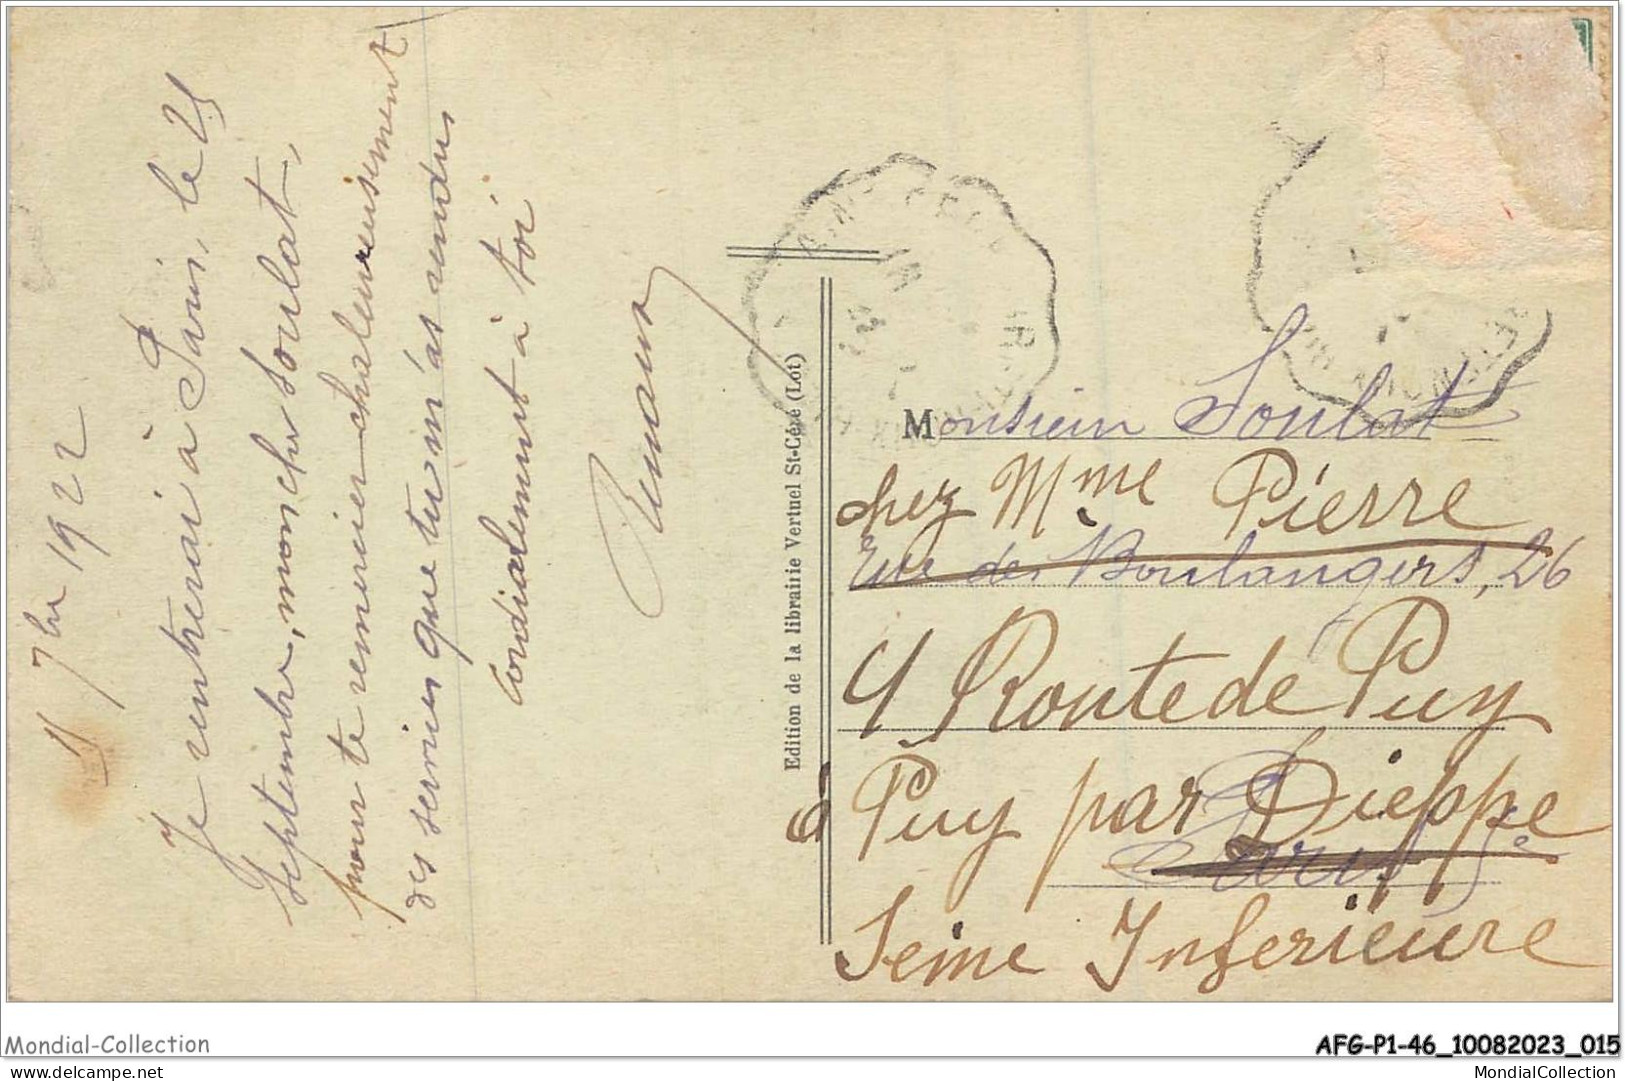 7bre 1922
Je rentrerai à Paris, le 25
septembre, mon cher Soulat,
pour te remercier chaleureusement
des services que tu m'as rendus
Cordialement à toi
Edition de la librairie Vertuel St-Céré (Lot)
Monsieur Soulat
chez Mme Pierre
Rue des Boulangers, 26
4 Route de Puy
à Puy par Dieppe
Paris 5e
Seine Inferieure
Mondial-Collection
AFG-P1-46_10082023_015
delcampe.net
MondialCollection